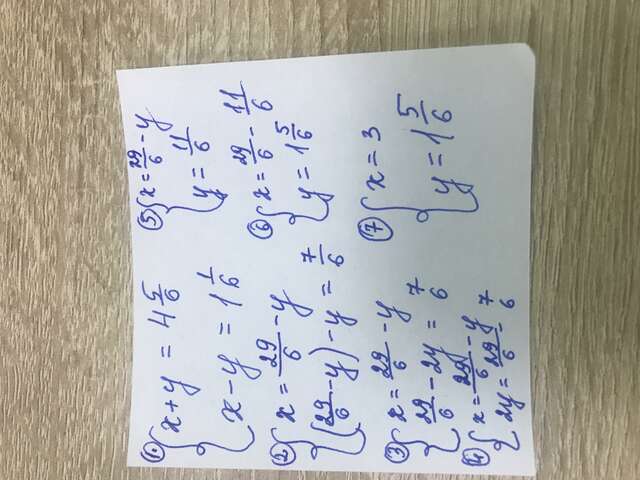 1. x+y = 4 5/6
x-y = 1 1/6
2 x = 29/6 - y
(29/6 - y) - y = 7/6
3 x = 29/6 - y
29/6 - 2y = 7/6
4 x = 29/6 - y
2y = 29/6 - 7/6
5 x = 29/6 - y
y = 11/6
6 x = 29/6 - 11/6
y = 1 5/6
7 x = 3
y = 1 5/6